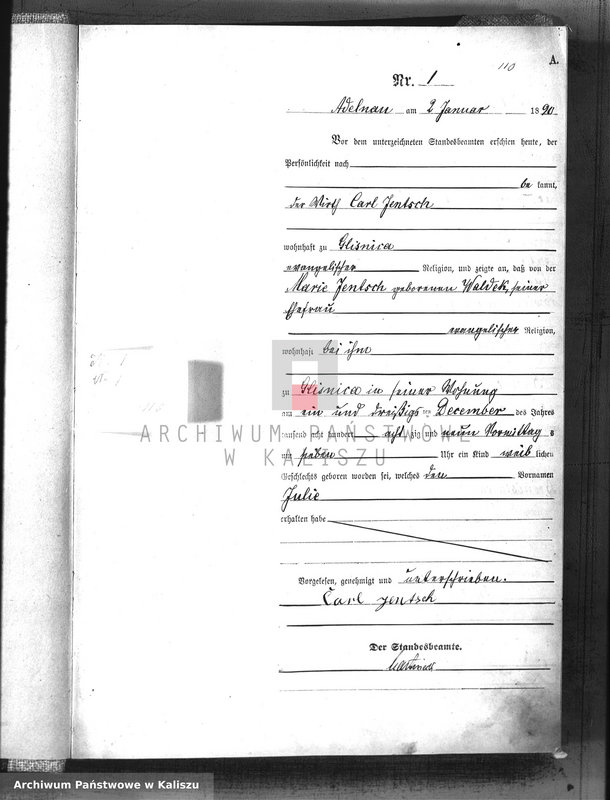 110
A.
Nr. 1
Adelnau am 2 Januar 1890
Vor dem unterzeichneten Standesbeamten erschien heute, der
Persönlichkeit nach
be kannt,
der Wirth Carl Jentsch
wohnhaft zu Glisnica
evangelischer Religion, und zeigte an, daß von der
Marie Jentsch geborenen Waldek, seiner
Ehefrau
evangelischer Religion,
wohnhaft bei ihm
zu Glisnica in seiner Wohnung
am ein und dreißigsten December des Jahres
tausend acht hundert achtzig und neun Vormittags
um sieben Uhr ein Kind weib lichen
Geschlechts geboren worden sei, welches den Vornamen
Julie
erhalten habe
ARCHIWUM PAŃSTWOWE
W KALISZU
Vorgelesen, genehmigt und unterschrieben.
Carl Jentsch
Der Standesbeamte.
Archiwum Państwowe w Kaliszu